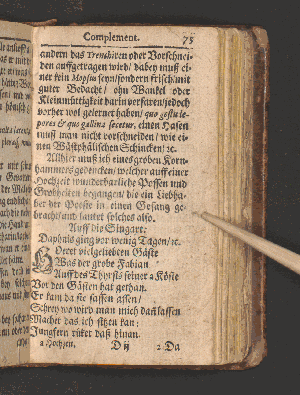 Complement. 75
andern das Trenchiren oder Vorschnei-
den auffgetragen wird / dabey muß ei-
ner kein Mopsus seyn / sondern frisch / mit
guter Bedacht / ohn Wanckel oder
Kleinmütigkeit darin verfaren / jedoch
vorher wol gelernet haben / quo gestu le-
pores & quo gallina secetur, einen Hasen
muß man nicht vorschneiden / wie ei-
nen Wästphälischen Schincken / ꝛc.
Allhier muß ich eines groben Korn-
hammers gedencken / welcher auff einer
Hochzeit wunderbarliche Possen und
Grobheiten begangen / die ein Liebha-
ber der Poesie in einen Gesang ge-
bracht / und lautet solches also.
Auff die Singart:
Daphnis ging vor wenig Tagen / ꝛc.
Höret vielgeliebten Gäste
Was der grobe Fabian
Auff des Thyrsis seiner a Köste
Vor den Gästen hat gethan.
Er kam da sie sassen assen /
Schrey wo wird man mich dañ lassen
Machet das ich sitzen kan:
Jungfern rücket daß hinan.
a Hochzeit. D iij 2. Da